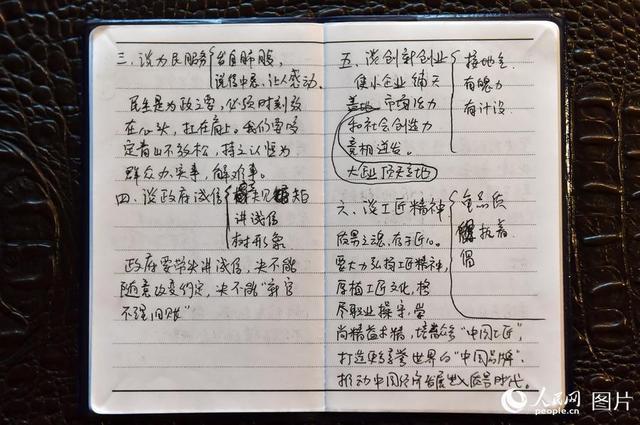 三、谈为民服务 发自肺腑,
说修中意、让人感动.
民生是为政之要,必须时刻放
在心头,扛在肩上。我们要咬
定青山不放松,持之以恒为
群众办实事,解难事。
四、谈政府诚信
讲诚信
树形象
政府要带头讲诚信,决不能
随意改变约定,决不能“新官
不理旧账”
五、谈创新创业 接地气
使小企业铺天 有魄力
盖地 市场活力 有计设
和社会创造力
竞相迸发。
大企 顶天立地
六、谈工匠精神 品质
质量之魂,存于匠心。 执着
要大力弘扬工匠精神,
厚植工匠文化,恪
尽职业操守,崇
尚精益求精,培育众多“中国工匠”,
打造更多享誉世界的“中国品牌”,
推动中国经济发展进入质量时代。
人民网 图片
people.cn